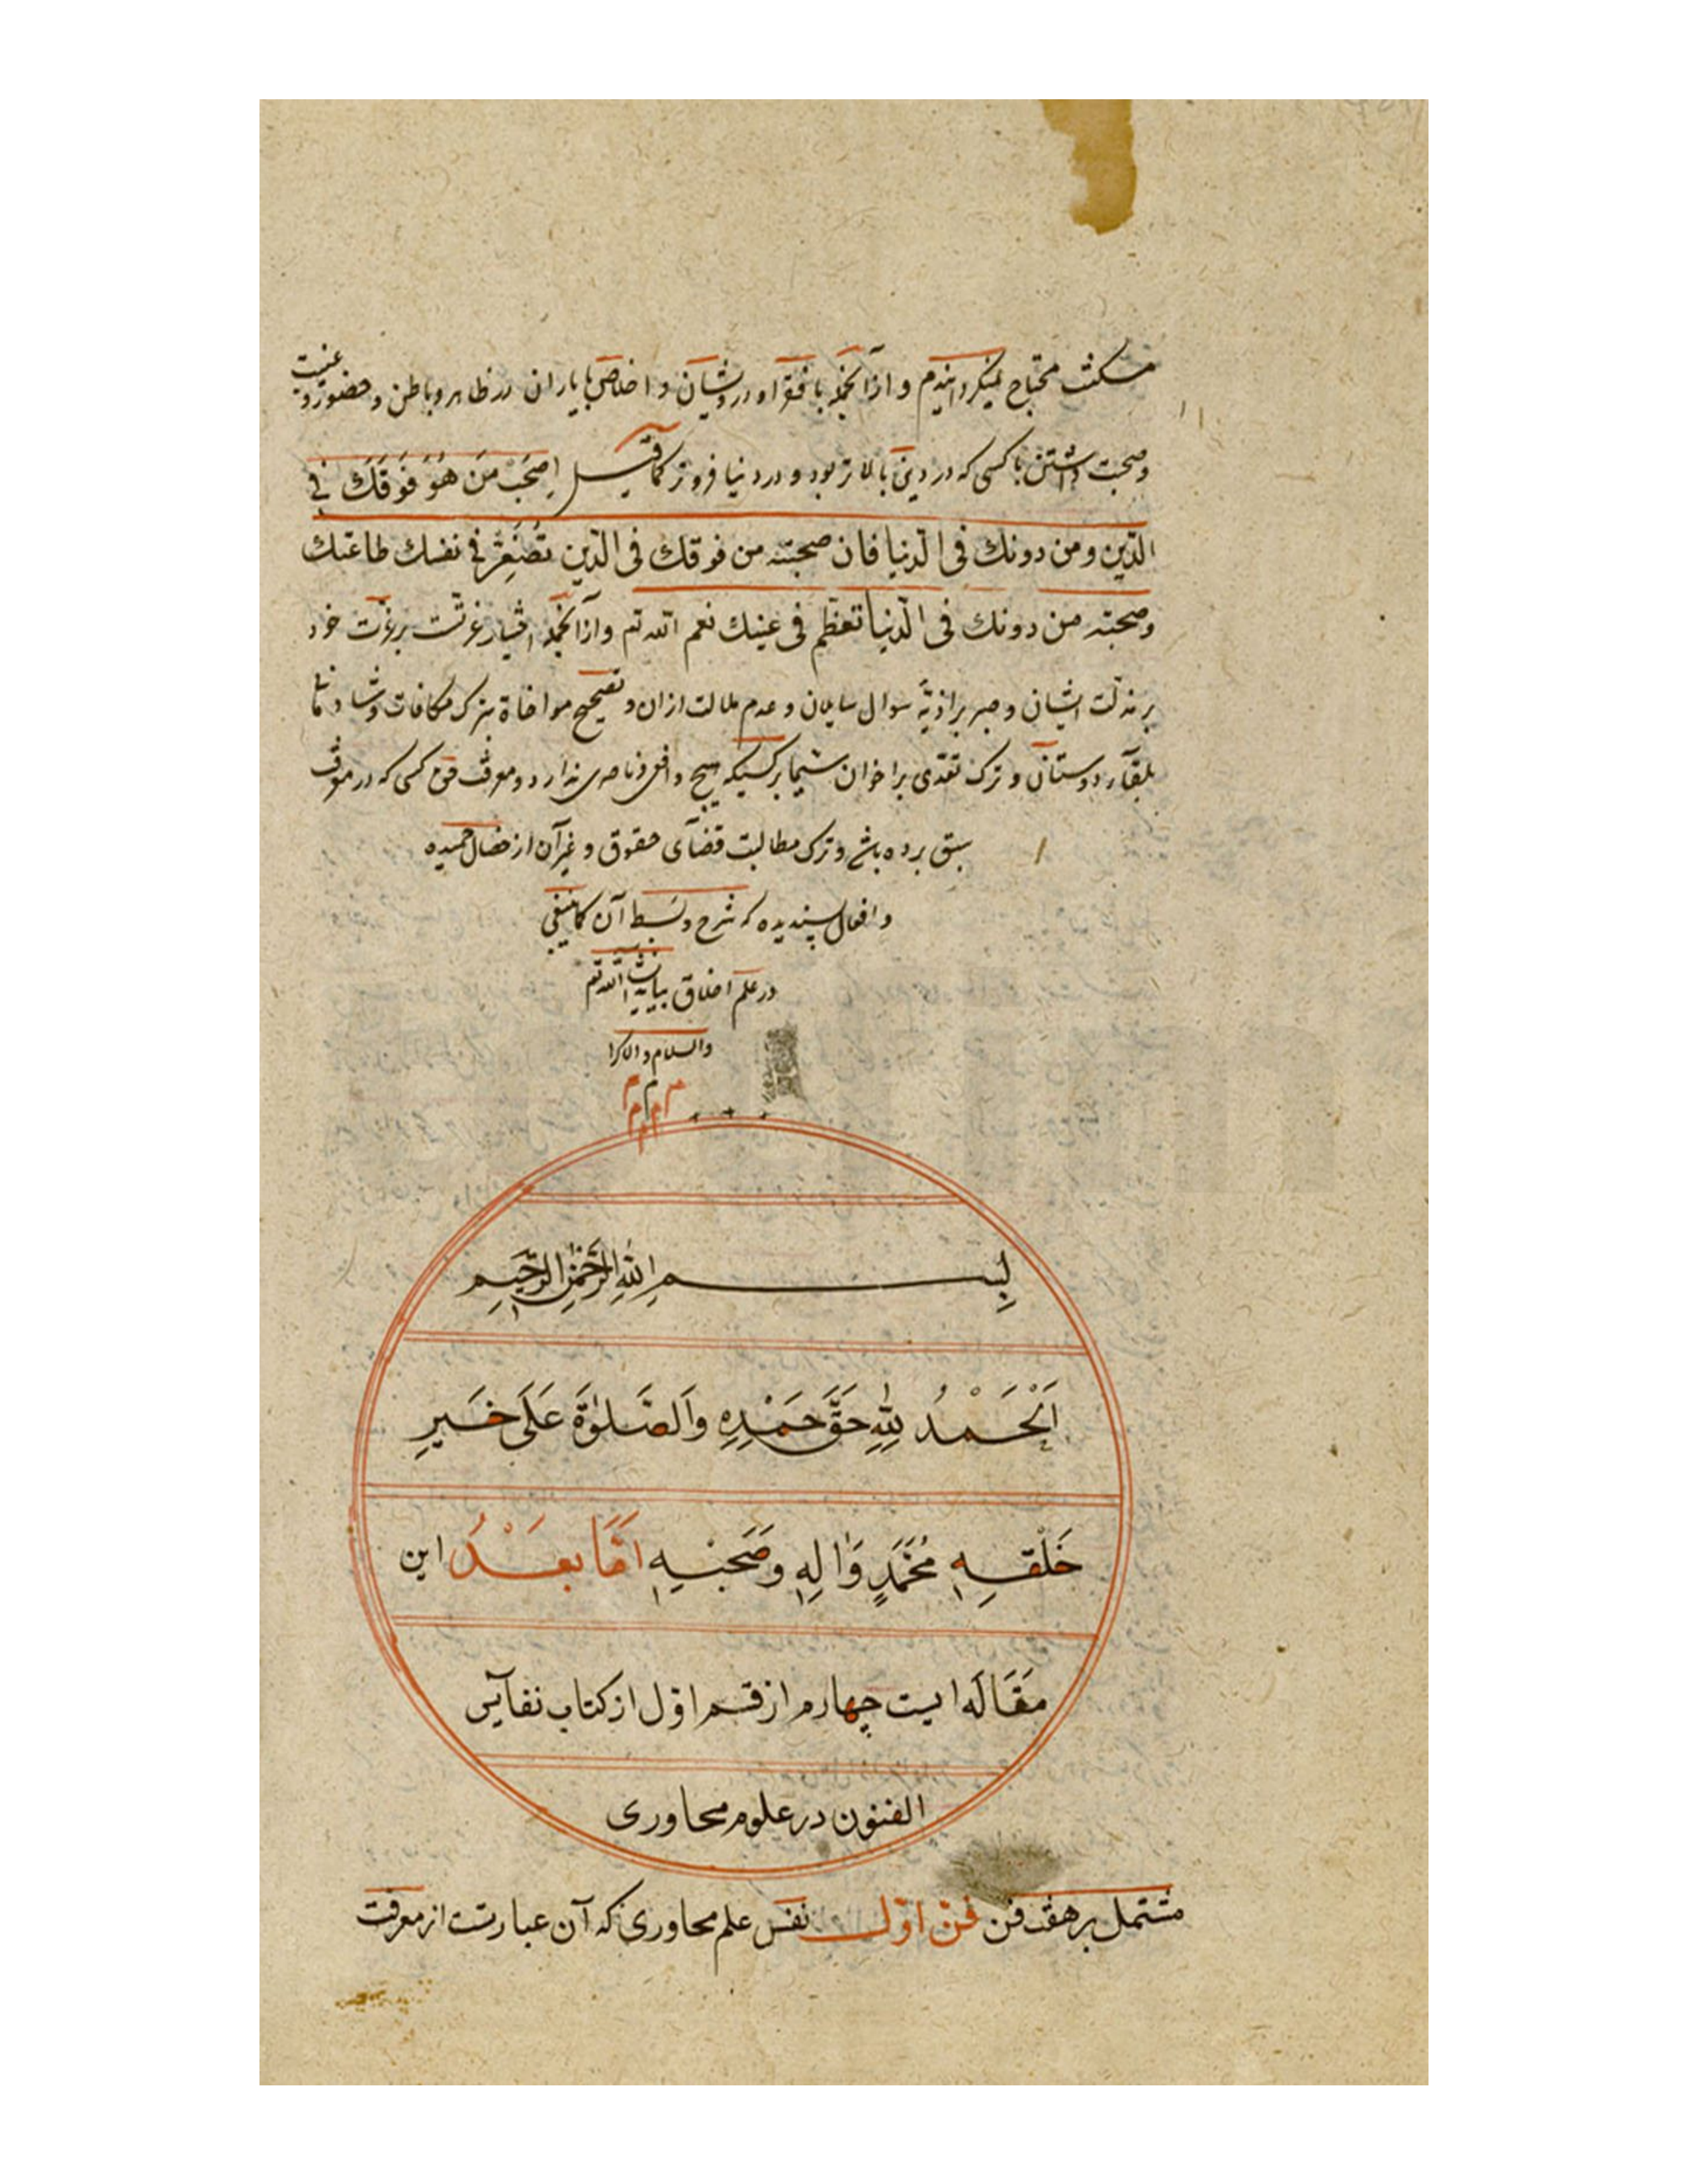 مسکنت محتاج نمیگردانیدم و از آنجمله با فقرا و درویشان و اخلاص با یاران در ظاهر و باطن و حضور و غیبت
و صحبت داشتن با کسی که در دین بالاتر بود و در دنیا فروتر کما قیل اِصحَبْ مَن هُوَ فَوقَكَ فی
الدّین و من دونك فی الدّنیا فان صحبته من فوقك فی الدّین تُصَغِّر فی نفسك طاعتك
و صحبته من دونك فی الدّنیا تعظّم فی عینك نعم الله تع و از آنجمله اختیار عزت بر عزت خود
بر مذلّت ایشان و صبر بر اذیّة سوال سایلان و عدم ملالت از ان و تصحیح مواخاة بترک مکافات و شادمانی
بلقآء دوستان و ترک تعدّی بر اخوان سیّما بر کسیکه هیچ دافعی و ناصری ندارد و معرفت حق کسی که در معرفت
سبق برده باشد و ترک مطالبت قضآی حقوق و غیر آن از خصال حمیده
و افعال پسندیده که شرح و بسط آن کما ینبغی
در علم اخلاق بیاید انشآء الله تع
والسلام والاکرا
م م م
م م
م
بِسم اللهِ الرَّحمٰنِ الرَّحیمِ
اَلْحَمْدُ لِلّٰهِ حَقَّ حَمْدِهِ وَالصَّلوٰةَ عَلَی خَیرِ
خَلْقِهِ مُحَمَّدٍ وَاٰلِهِ وَصَحبِهِ اَمَّا بَعْدُ این
مَقَالَه ایست چهارم از قسم اوّل از کتاب نفآیس
الفنون در علوم محاوری
مشتمل بر هفت فن فنّ اوّل نفس علم محاوری که آن عبارتست از معرفت